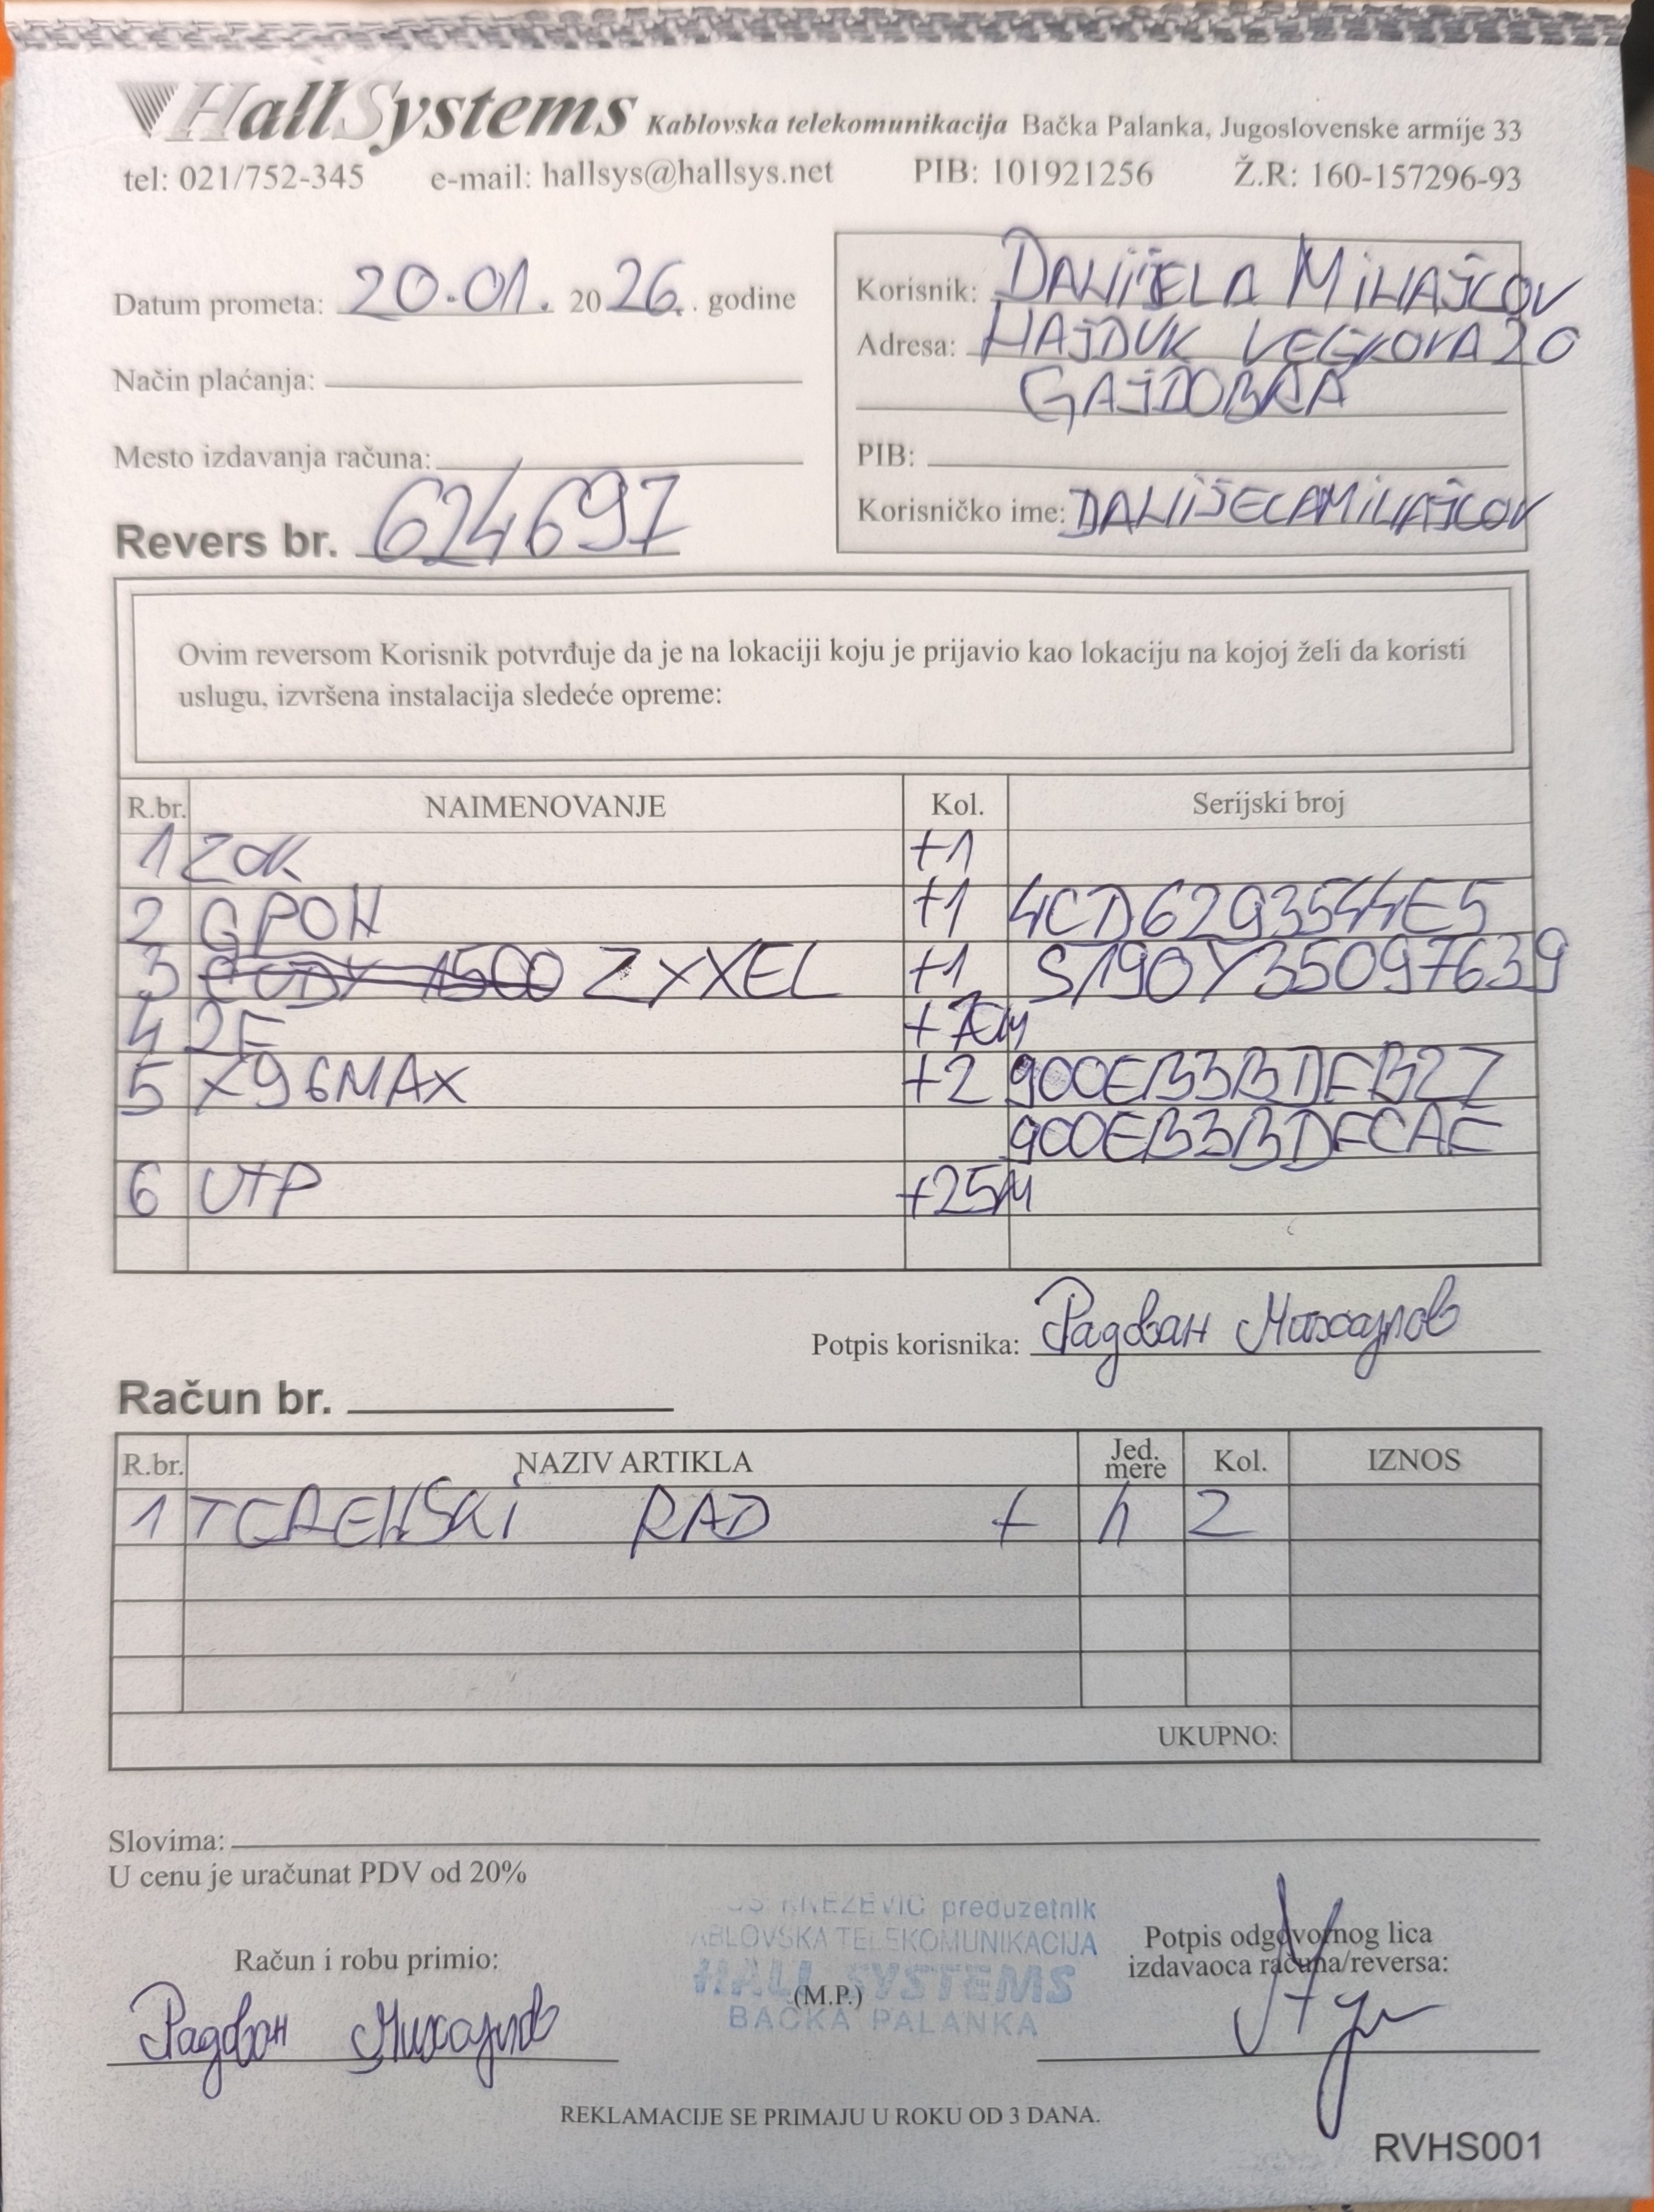 HallSystems Kablovska telekomunikacija Bačka Palanka, Jugoslovenske armije 33
tel: 021/752-345 e-mail: hallsys@hallsys.net PIB: 101921256 Ž.R: 160-157296-93
Datum prometa: 20.01. 2026. godine
Način plaćanja:
Mesto izdavanja računa:
Revers br. 624697
Korisnik: DANIJELA MIHAJLOV
Adresa: HAJDUK VELJKOVA 20
GAJDOBRA
PIB:
Korisničko ime: DANIJELAMIHAJLOV
Ovim reversom Korisnik potvrđuje da je na lokaciji koju je prijavio kao lokaciju na kojoj želi da koristi
uslugu, izvršena instalacija sledeće opreme:
R.br. NAIMENOVANJE Kol. Serijski broj
1 ZOK +1
2 GPON +1 4CD6293544E5
3 CUDY 1500 ZYXXEL +1 S190Y35097639
4 2F
5 X96MAX +2 900EB3BDFB27
900EB3BDFCAE
6 UTP +25M
Potpis korisnika: Радован Михајлов
Račun br.
R.br. NAZIV ARTIKLA Jed. mere Kol. IZNOS
1 TERENSKI RAD + h 2
UKUPNO:
Slovima:
U cenu je uračunat PDV od 20%
Račun i robu primio:
Радован Михајлов
KNEZEVIC preduzetnik
ABLOVSKA TELEKOMUNIKACIJA
HALL SYSTEMS
(M.P.)
BACKA PALANKA
Potpis odgovornog lica
izdavaoca računa/reversa:
REKLAMACIJE SE PRIMAJU U ROKU OD 3 DANA.
RVHS001